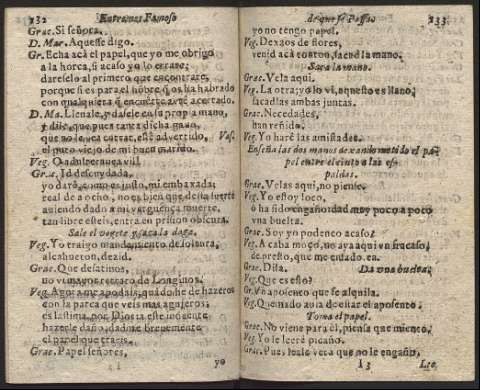 232 Entremes Famoso
Grac. Si señora.
D. Mar. Aquesse digo.
Gr. Echa acà el papel, que yo me obrigo
a la horca, si acaso yo lo errare;
dareselo al primero que encontrare,
porque si es para el hõbre, q̃ os ha habrado
con qualquiera q̃ encuẽtre avrè acertado.
D. Ma. Llenale, y dasele en su propia mano,
y dile, que pues tanta dicha gano,
que no le vea entrar, estè advertido, Vas.
el puto viejo de mi buen marido.
Veg. O adultera vil!
Grac. Id descuydada,
yo darè, como es justo, mi embaxada:
real de a ocho, no es bien que desta suerte
auiendo dado a mi verguença muerte,
tan libre esteis, entrà en prision obscura.
Sale el vegete y saca la daga.
Veg. Yo traigo mandamiento de soltura,
alcahueton, dezid.
Grac. Que desatinos,
no vi mayor retrato de Longinos.
Veg.
con la parca que veis mas agujeros;
es lastima, por Dios
hazerle daño, dadme brevemente
el papel que traeis.
Grac. Papel señores,
yo
de que se Passa. 233
yo no tengo papel.
Veg. Dexaos de flores,
venid acà conton, sacad la mano.
Saca la mano.
Grac. Vela aqui.
Veg. La otra; yo lo vi, aquesto es llano,
sacadlas ambas juntas.
Grac. Necedades,
han reñido.
Veg. Yo harè las amistades.
Enseña las dos manos dexando metido el pa-
pel entre el cinto a las es-
paldas.
Grac. Velas aqui, no piense.
Veg. Yo estoy loco,
ò ha sido engaño: dad muy poco a poco
vna buelta.
Grac. Soy yo podenco acaso?
Veg. Acaba moço, no aya aqui vn fracaso
de presto, que me enfado en.
Grac. Dila. Da vna buelta.
Veg. Que es esto?
Gr. Vn aposento que se alquila.
Veg. Quemado avia de estar el aposento.
Toma el papel.
Grac. No viene para èl, piensa que miento,
Veg. Yo le leerè picaño.
Grac. Pues leale verà que no le engaño.
I 3 Lee